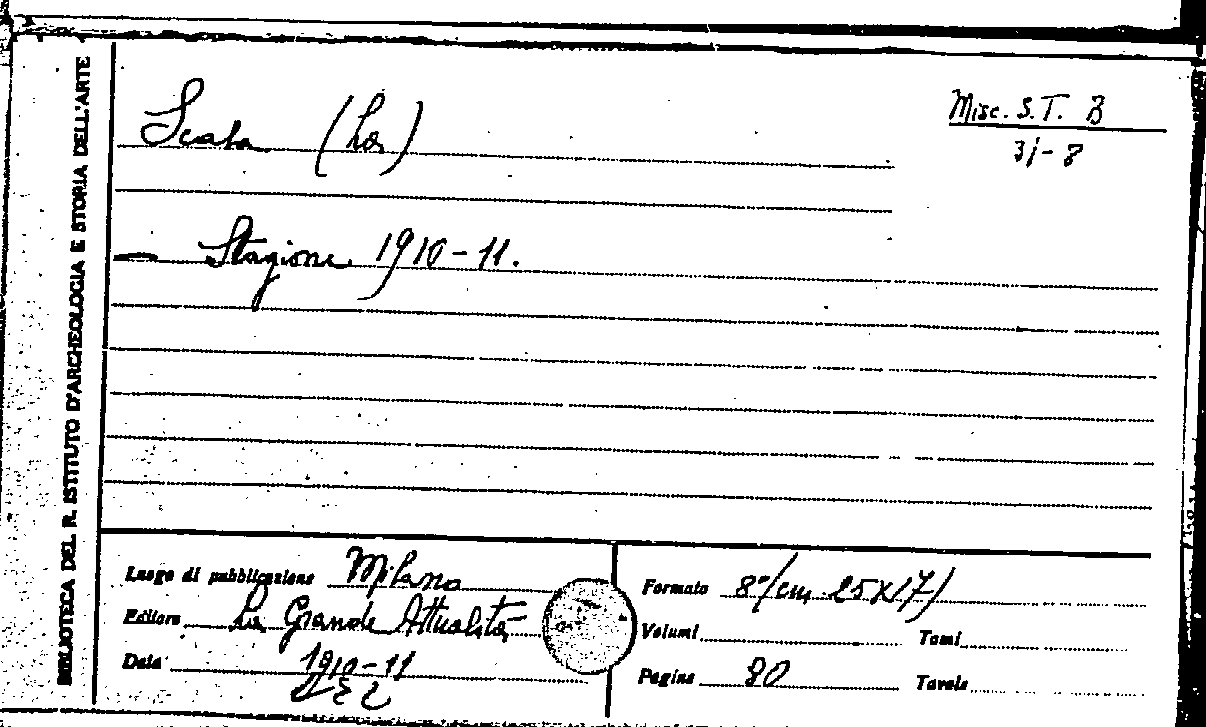 BIBLIOTECA DEL R. ISTITUTO D'ARCHEOLOGIA E STORIA DELL'ARTE
Misc. S. T. B
31-8
Scala (La)
— Stagione 1910-11.
Luogo di pubblicazione Milano
Editore La Grande Attualità
Data 1910-11
Formato 8°(cm 25x17)
Volumi Tomi
Pagine 80 Tavole